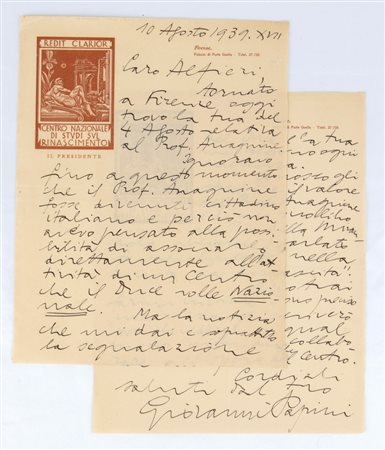 REDIT CLARIOR
CENTRO NAZIONALE
DI STUDI SUL
RINASCIMENTO
IL PRESIDENTE
10 Agosto 1939. XVII
Firenze,
Palazzo di Parte Guelfa - Telef. 27-728
Caro Alfieri,
tornato
a Firenze oggi
trovo la tua del
4 Agosto relativa
al Prof. Anagnine.
Ignoravo
fino a questo momento
che il Prof. Anagnine
fosse divenuto cittadino
italiano e perciò non
avevo pensato alla possi-
bilità di associarlo
direttamente all'at-
tività di un Centro
che il Duce volle Nazio-
nale.
Ma la notizia
che mi dai e soprattutto
la segnalazione
Telef. 27-728
la tua
il valore
Anagnine
nella
Centro.
Cordiali
saluti dal tuo
Giovanni Papini